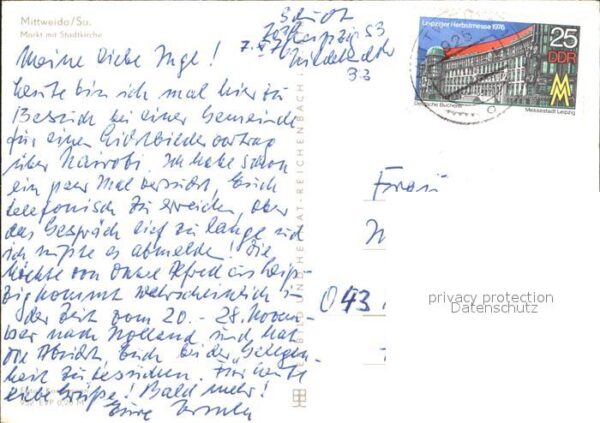 Mittweida/Sa.
Markt mit Stadtkirche
7034 Leipzig 53
33
Meine liebe Inge!
heute bin ich mal hier zu
Besuch bei einer Gemeinde
für einen Lichtbildervortrag
über Nairobi. Ich habe schon
ein paar Mal versucht, Euch
telefonisch zu erreichen, aber
das Gespräch lief zu lange und
ich mußte es abmelden! Die
Tochter von Onkel Alfred aus Leip-
zig kommt wahrscheinlich in
der Zeit vom 20. - 28. Novem-
ber nach Holland und hat
die Absicht, Euch bei der Gelegen-
heit zu besuchen. Für heute
liebe Grüße! Bald mehr!
Eure Ursula
BILD UND HEIMAT REICHENBACH
Leipziger Herbstmesse 1976
25
DDR
MM
Deutsche Bücherei
Messestadt Leipzig
Frau
043
privacy protection
Datenschutz